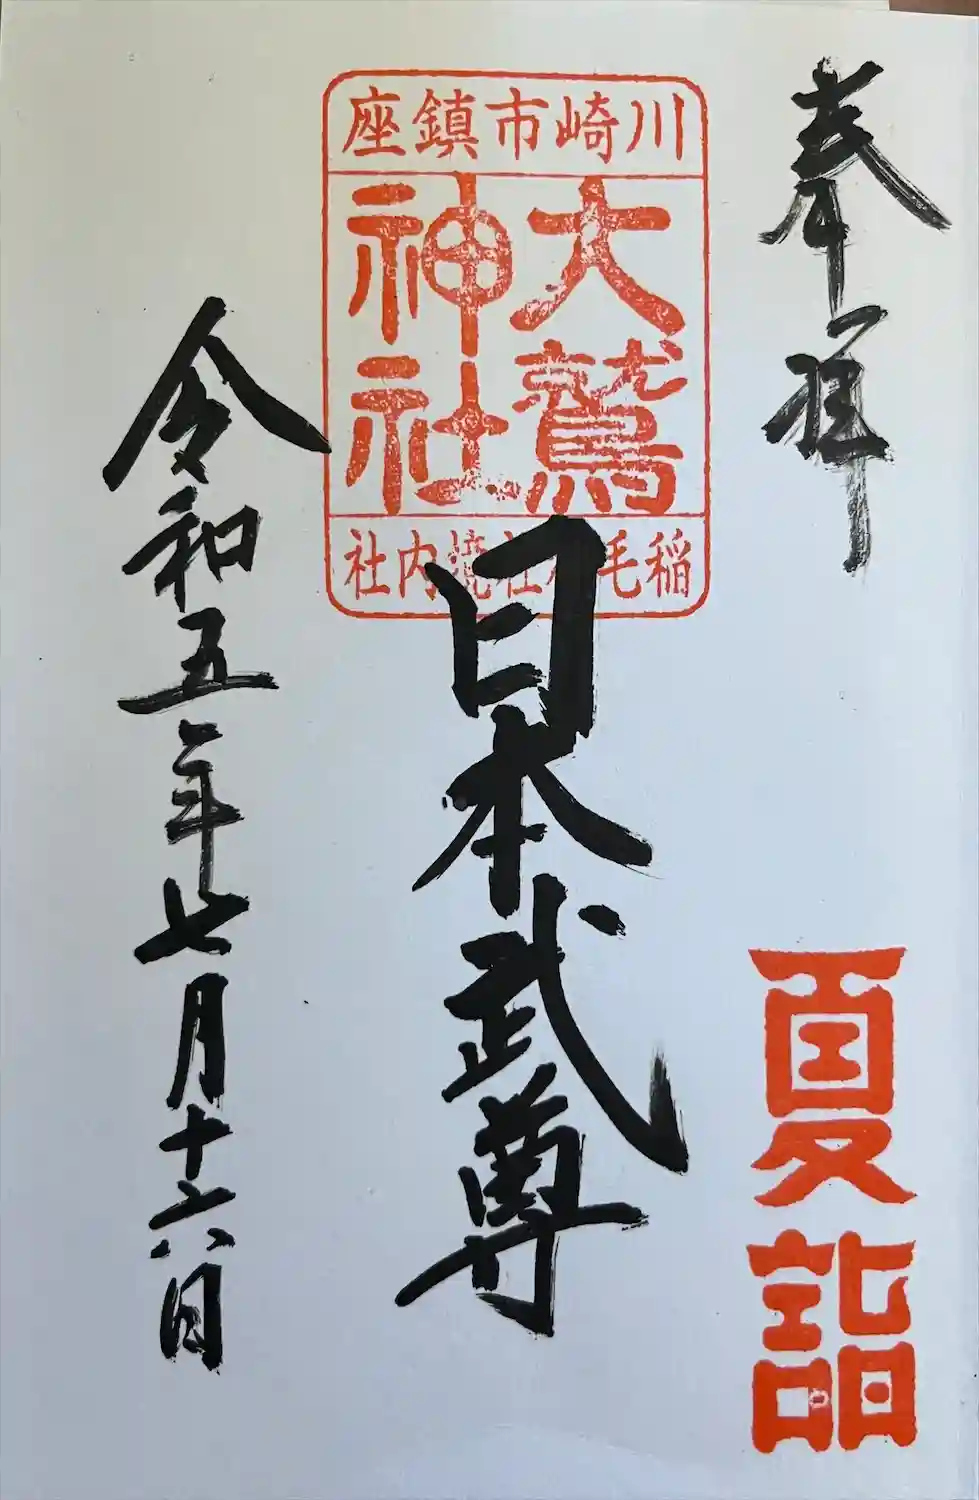 奉拝
夏詣
川崎市鎮座
大鷲
神社
稲毛神社境内社
日本武尊
令和五年七月十六日